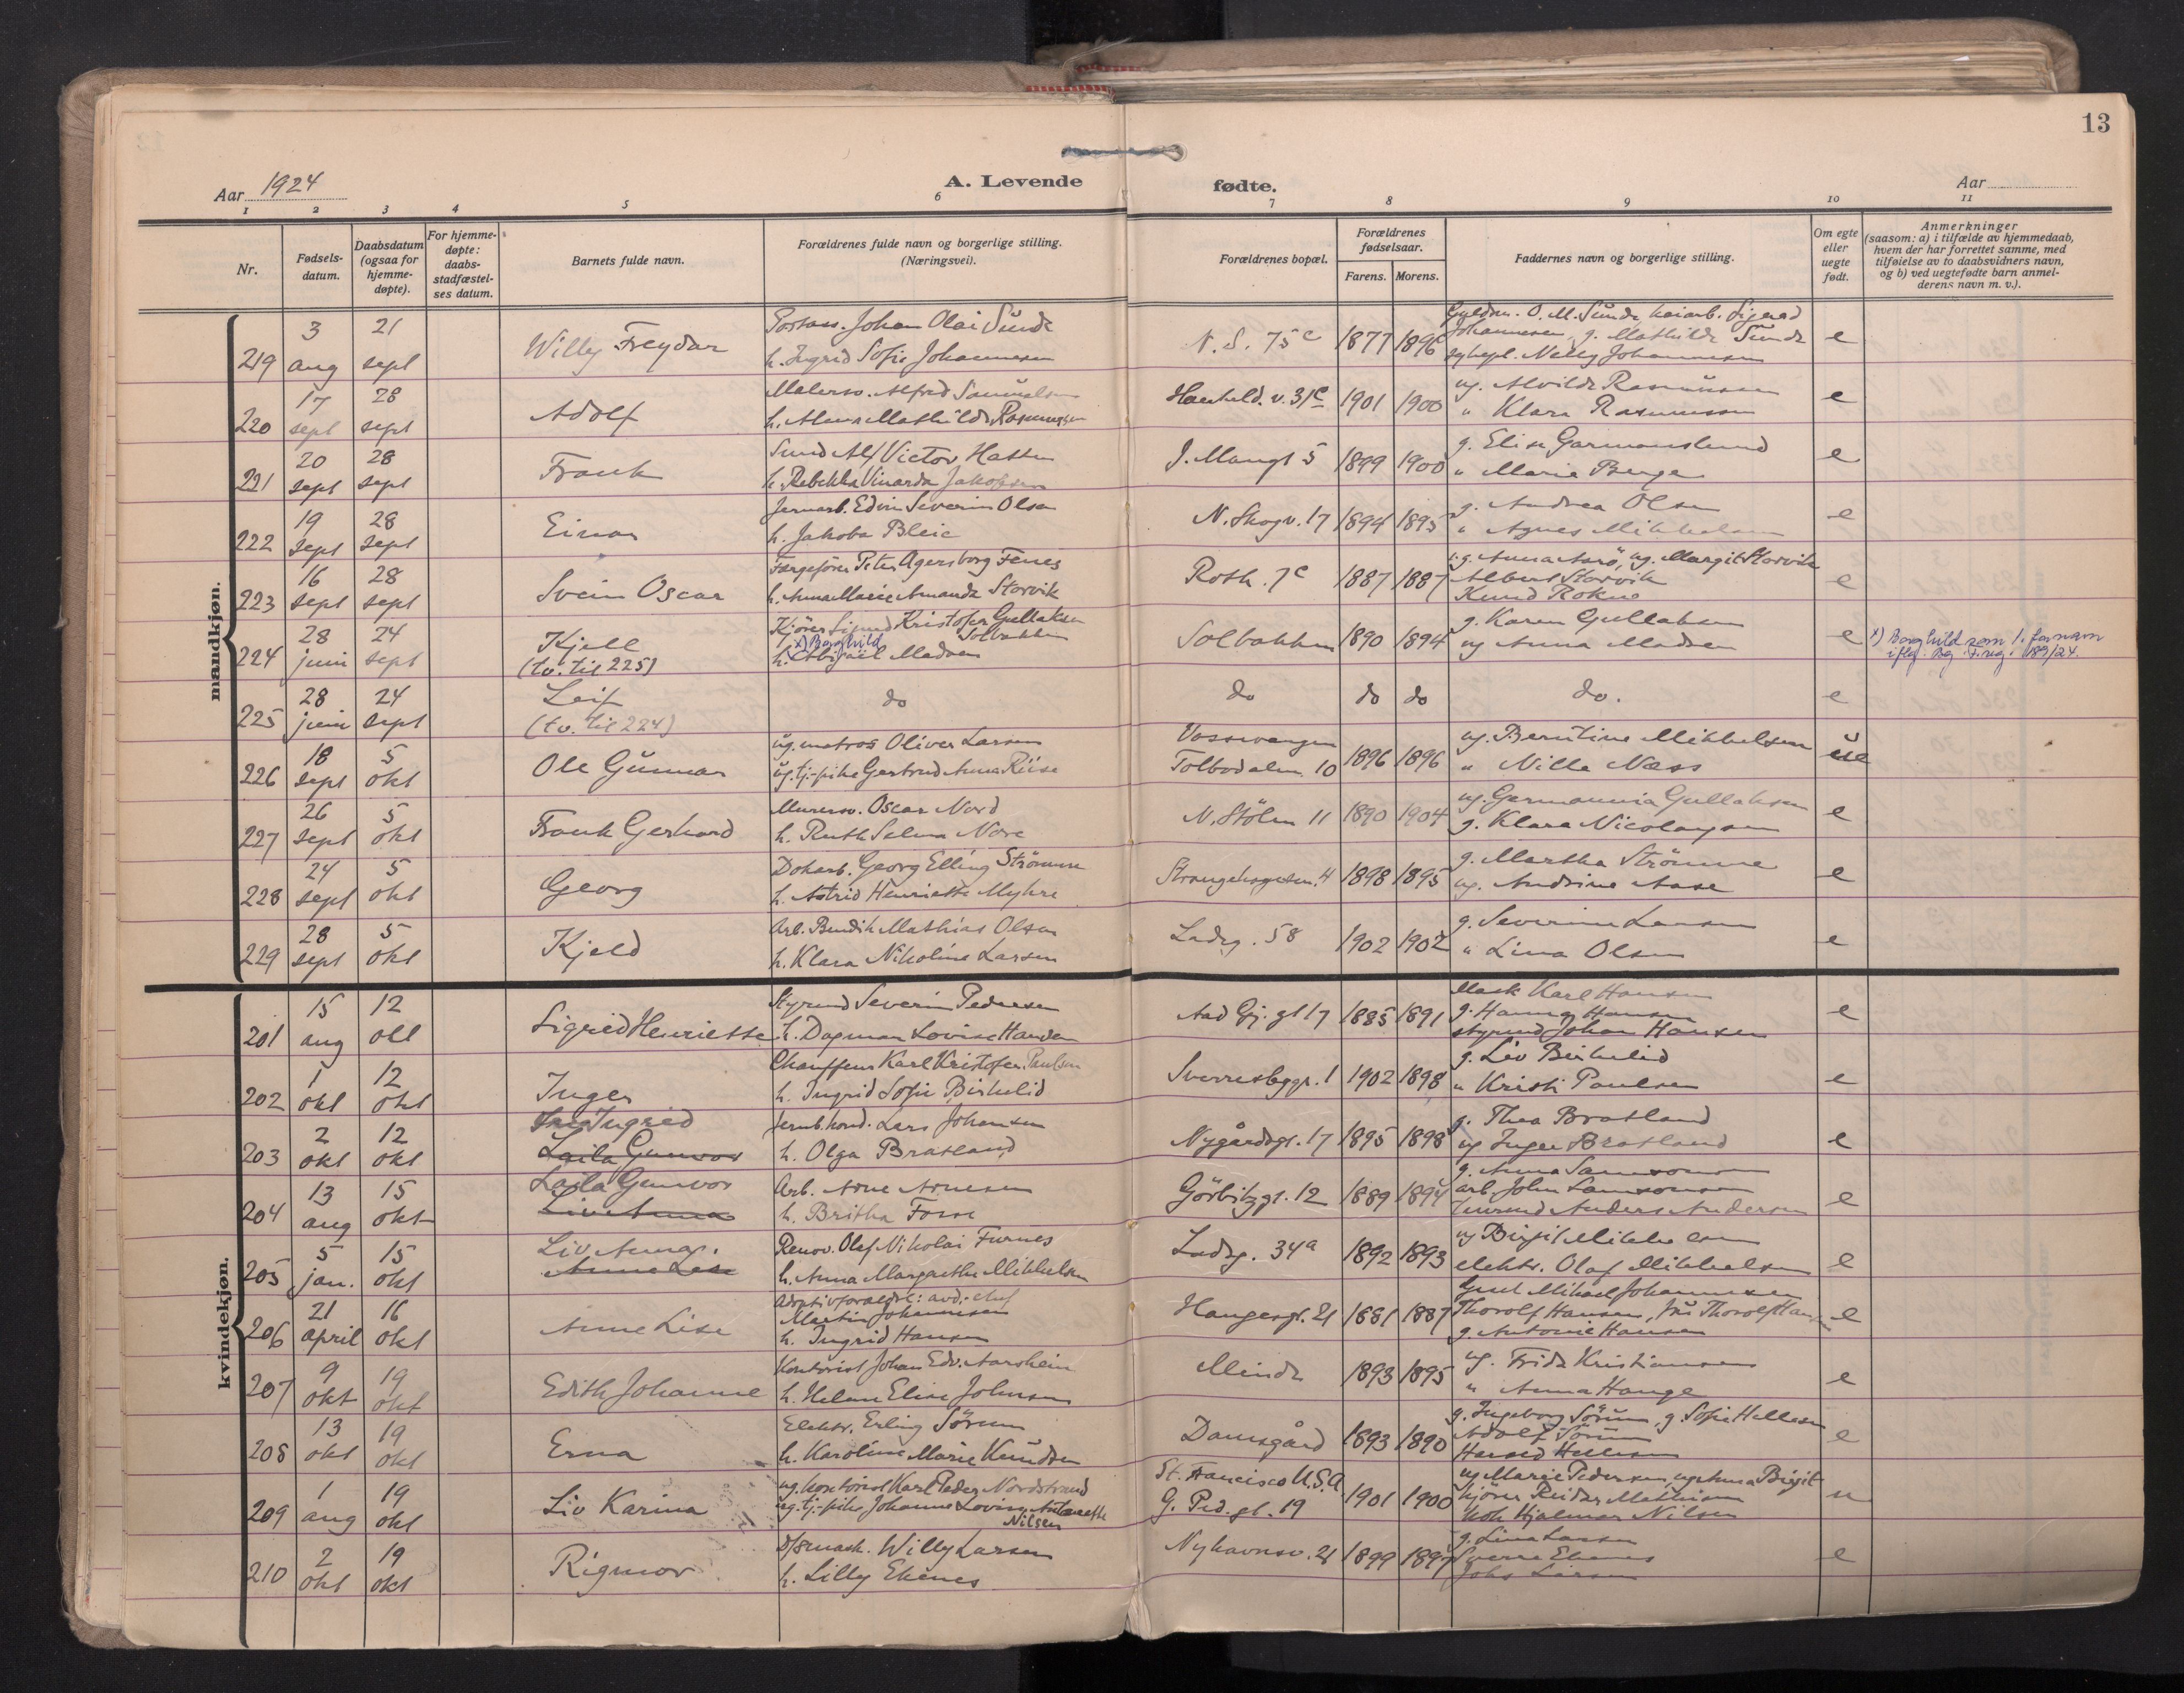 13
Aar 1924
A. Levende
fødte.
Aar
1 2 3 4 5 6 7 8 9 10 11
Nr.
Fødsels-
datum.
Daabsdatum
(ogsaa for
hjemme-
døpte).
For hjemme-
døpte:
daabs-
stadfæstel-
ses datum.
Barnets fulde navn.
Forældrenes fulde navn og borgerlige stilling.
(Næringsvei).
Forældrenes bopæl.
Forældrenes
fødselsaar.
Farens. Morens.
Faddernes navn og borgerlige stilling.
Om egte
eller
uegte
født.
Anmerkninger
(saasom: a) i tilfælde av hjemmedaab,
hvem der har forrettet samme, med
tilføielse av to daabsvidners navn,
og b) ved uegtefødte barn anmel-
derens navn m. v.).
mandkjøn.
219 3 aug 21 sept Willy Freydar
Johan Olai Sunde
h. Ingrid Sofie Johannesen
N. S. 75c 1877 1896
O. M. Sunde Sigurd
Johannesen g. Mathilde Sunde
Nelly Johannesen
e
220 17 sept 28 sept Adolf
Malersv. Alfred Samuelsen
h. Alma Mathilde Rasmussen
v. 31c 1901 1900
ug. Alvilde Rasmussen
" Klara Rasmussen
e
221 20 sept 28 sept Frank
Alf Victor
h. Rebekka Jakobsen
J. Mangt 5 1899 1900
g. Elise Garmannslund
" Marie Berge
e
222 19 sept 28 sept Einar
Jernarb. Edvin Severin Olsen
h. Jakoba Bleie
N. Skogv. 17 1894 1895
g. Andrea Olsen
" Agnes Mikkelsen
e
223 16 sept 28 sept Svein Oscar
Færgefører Peter Agersborg Fenes
h. Anna Marie Amanda Storvik
Roth. 7c 1887 1887
g. Anna Aarø, ug. Margit Storvik
Albert Storvik
Knud Rokne
e
224 28 juni 24 sept Kjell
(tv. til 225)
Kjører Sigurd Kristofer Gullaksen
Solbakken
x) Borghild
h. Abigael Madsen
Solbakken 1890 1894
g. Karen Gullaksen
ug Anna Madsen
e
x) Borghild som 1. fornavn
iflg. Bg. F.reg. 189/24.
225 28 juni 24 sept Leif
(tv. til 224)
do
do do do do.
e
226 18 sept 5 okt Ole Gunnar
ug. matros Oliver Larsen
ug. tj.-pike Gertrud Anna Riise
Vossevangen
Tolbodalm. 10 1896 1896
ug. Berntine Mikkelsen
" Nilla Næss
ue
227 26 sept 5 okt Frank Gerhard
Murersv. Oscar Nord
h. Ruth Selma Nore
N. Stølen 11 1890 1904
ug. Germannia Gullaksen
g. Klara Nicolaysen
e
228 24 sept 5 okt Georg
Dokarb. Georg Elling Strømme
h. Astrid Henriette Myhre
Strangehagen. 4 1898 1895
g. Martha Strømme
ug. Andrine Aase
e
229 28 sept 5 okt Kjeld
Arb. Bendik Mathias Olsen
h. Klara Nikoline Larsen
Ladeg. 58 1902 1902
g. Severine Larsen
" Lina Olsen
e
kvindekjøn.
201 15 aug 12 okt Sigrid Henriette
Styrmd Severin Pedersen
h. Dagmar Lovise Hansen
Aad Gj. gt 17 1885 1891
Mask Karl Hansen
g. Hanna Hansen
styrmd Johan Hansen
e
202 1 okt 12 okt Inger
Chauffeur Karl Kristofer Paulsen
h. Ingrid Sofie Birkelid
Sverresbggt. 1 1902 1898
g. Liv Birkelid
" Kristi Paulsen
e
203 2 okt 12 okt Ingrid
Laila Gunvor
Jernb.kond. Lars Johansen
h. Olga Bratland
Nygårdsgt. 17 1895 1898
g. Thea Bratland
ug Inger Bratland
e
204 13 aug 15 okt Laila Gunvor
Liv Anna
Arb. Arne Arnesen
h. Britha Fosse
Görbitzgt. 12 1889 1894
g. Anna Samsonsen
arb. John Samsonsen
Anders Andersen
e
205 5 jan. 15 okt Liv Anna.
Anne Lise
Renov. Olaf Nikolai Furnes
h. Anna Margrethe Mikkelsen
Ladeg. 34a 1892 1893
ug Birgit Mikkelsen
elektr. Olaf Mikkelsen
e
206 21 april 16 okt Anne Lise
Adoptivforældre: avd.-chef
Martin Johannesen
h. Ingrid Hansen
Haugesgt. 21 1881 1887
Mikael Johannesen
Thorolf Hansen, fru Thorolf Hansen
g. Antonie Hansen
e
207 9 okt 19 okt Edith Johanne
Kontorist Johan Edv. Aarsheim
h. Helene Elise Johnsen
Minde 1893 1895
ug. Frida Kristiansen
" Anna Hauge
e
208 13 okt 19 okt Erna
Elektr. Erling Sørum
h. Karoline Marie Knudsen
Damsgård 1893 1890
g. Ingeborg Sørum, g. Sofie Hellesen
Adolf Sørum
Harald Hellesen
e
209 1 aug 19 okt Liv Karina
ug. kontorist Karl Peder Nordstrand
ug. tj.-pike Johanne Lovise Antonette
Nilsen
St. Francisco U.S.A.
G. Ped. gt. 19 1901 1900
ug Marie Pedersen, ug Anna Birgit
kjører Reidar Mathisen
Hjalmar Nilsen
u
210 2 okt 19 okt Rigmor
Willy Larsen
h. Lilly Ekenes
Nyhavnsv. 21 1899 1897
g. Lina Larsen
Sverre Ekenes
Johs Larsen
e